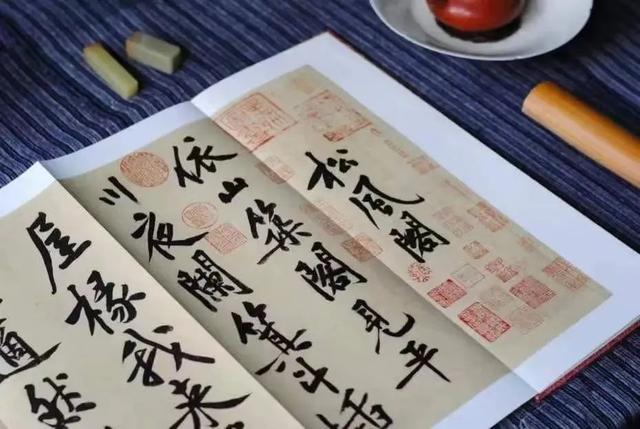 松風閣
依山築閣見平
川夜闌箕斗插
屋椽我來
適然